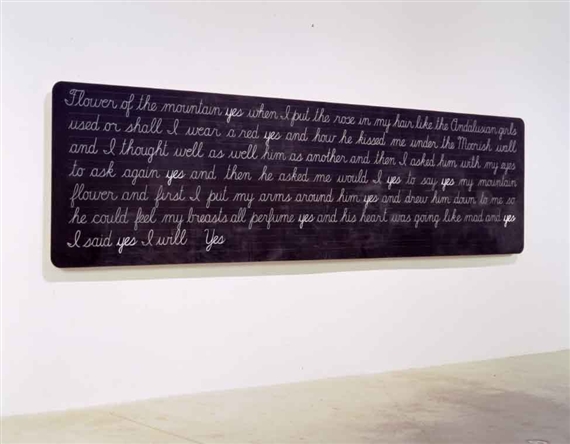 Flower of the mountain yes when I put the rose in my hair like the Andalusian girls
used or shall I wear a red yes and how he kissed me under the Moorish wall
and I thought well as well him as another and then I asked him with my eyes
to ask again yes and then he asked me would I yes to say yes my mountain
flower and first I put my arms around him yes and drew him down to me so
he could feel my breasts all perfume yes and his heart was going like mad and yes
I said yes I will Yes